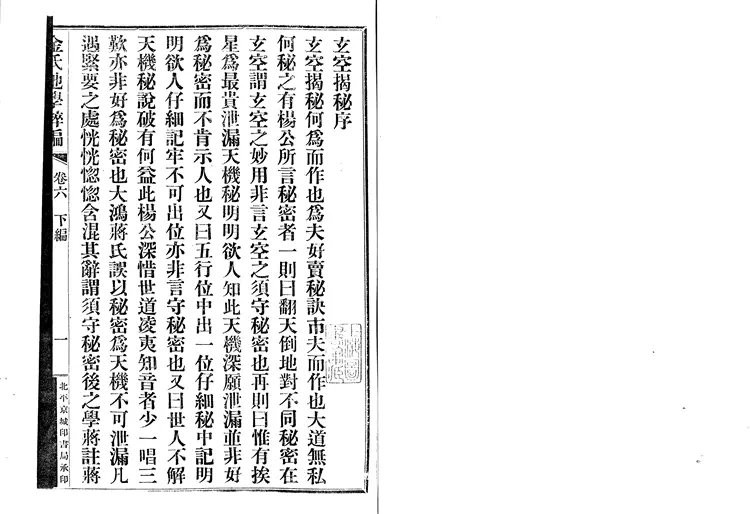 玄空揭秘序
玄空揭秘何爲而作也爲夫好賣秘訣市夫而作也大道無私
何秘之有楊公所言秘密者一則曰翻天倒地對不同秘密在
玄空謂玄空之妙用非言玄空之須守秘密也再則曰惟有挨
星爲最貴泄漏天機秘明明欲人知此天機深願泄漏並非好
爲秘密而不肯示人也又曰五行位中出一位仔細秘中記明
明欲人仔細記牢不可出位亦非言守秘密也又曰世人不解
天機秘說破有何益此楊公深惜世道凌夷知音者少一唱三
歎亦非好爲秘密也大鴻蔣氏誤以秘密爲天機不可泄漏凡
遇緊要之處恍恍惚惚含混其辭謂須守秘密後之學蔣註蔣
金氏地學粹編
卷六 下編
一
北平京城印書局承印